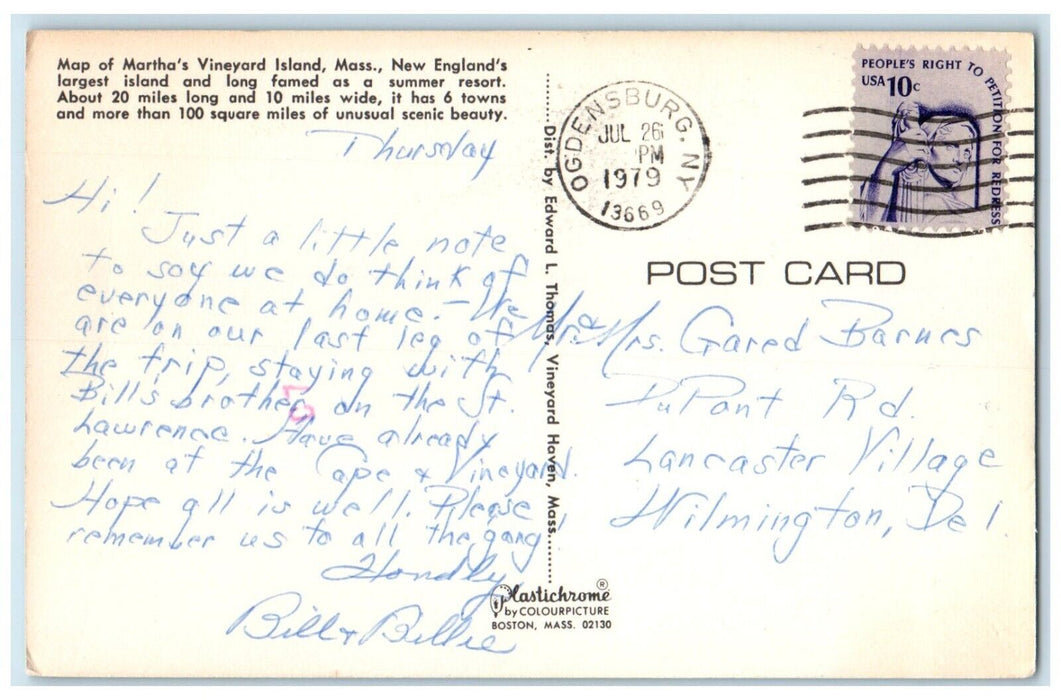 Map of Martha's Vineyard Island, Mass., New England's
largest island and long famed as a summer resort.
About 20 miles long and 10 miles wide, it has 6 towns
and more than 100 square miles of unusual scenic beauty.
Thursday
Hi!
Just a little note
to say we do think of
everyone at home. - We
are on our last leg of
the trip, staying with
Bill's brother on the St.
Lawrence. Have already
been at the Cape & Vineyard.
Hope all is well. Please
remember us to all the gang!
Fondly,
Bill & Billie
Dist. by Edward L. Thomas, Vineyard Haven, Mass.
Plastichrome®
by COLOURPICTURE
BOSTON, MASS. 02130
OGDENSBURG, NY
JUL 26
PM
1979
13669
PEOPLE'S RIGHT TO PETITION FOR REDRESS
USA 10c
POST CARD
Mr & Mrs. Gared Barnes
DuPont Rd.
Lancaster Village
Wilmington, Del